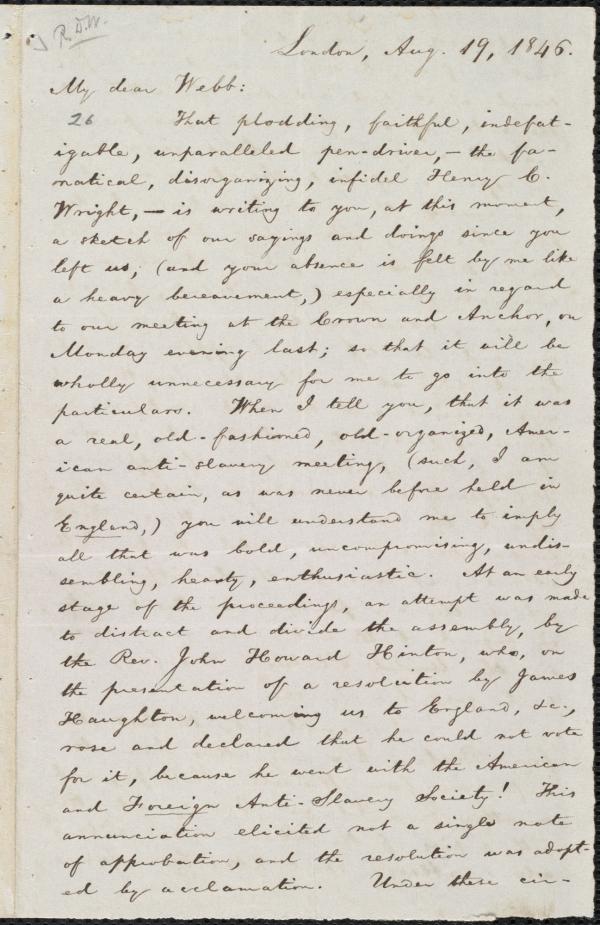 R.D.W.
London, Aug. 19, 1846.
My dear Webb:
26 That plodding, faithful, indefat-
igable, unparalleled pen-driver, — the fa-
natical, disorganizing, infidel Henry C.
Wright, — is writing to you, at this moment,
a sketch of our sayings and doings since you
left us; (and your absence is felt by me like
a heavy bereavement,) especially in regard
to our meeting at the Crown and Anchor, on
Monday evening last; so that it will be
wholly unnecessary for me to go into the
particulars. When I tell you, that it was
a real, old-fashioned, old-organized, Amer-
ican anti-slavery meeting, (such, I am
quite certain, as was never before held in
England,) you will understand me to imply
all that was bold, uncompromising, undis-
sembling, hearty, enthusiastic. At an early
stage of the proceedings, an attempt was made
to distract and divide the assembly, by
the Rev. John Howard Hinton, who, on
the presentation of a resolution by James
Haughton, welcoming us to England, &c.,
rose and declared that he could not vote
for it, because he went with the American
and Foreign Anti-Slavery Society! This
annunciation elicited not a single note
of approbation, and the resolution was adopt-
ed by acclamation. Under these cir-